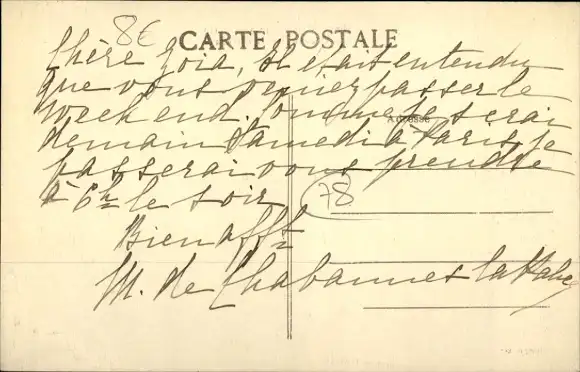 8€
CARTE POSTALE
Chère Zoia, Il etait entendu
que vous veniez passer le
Weekend. Comme je serai
Adresse
demain Samedi à Paris, je
passerai vous prendre
à 6h le soir
78
Bien afft
M. de Chabannes la Palice